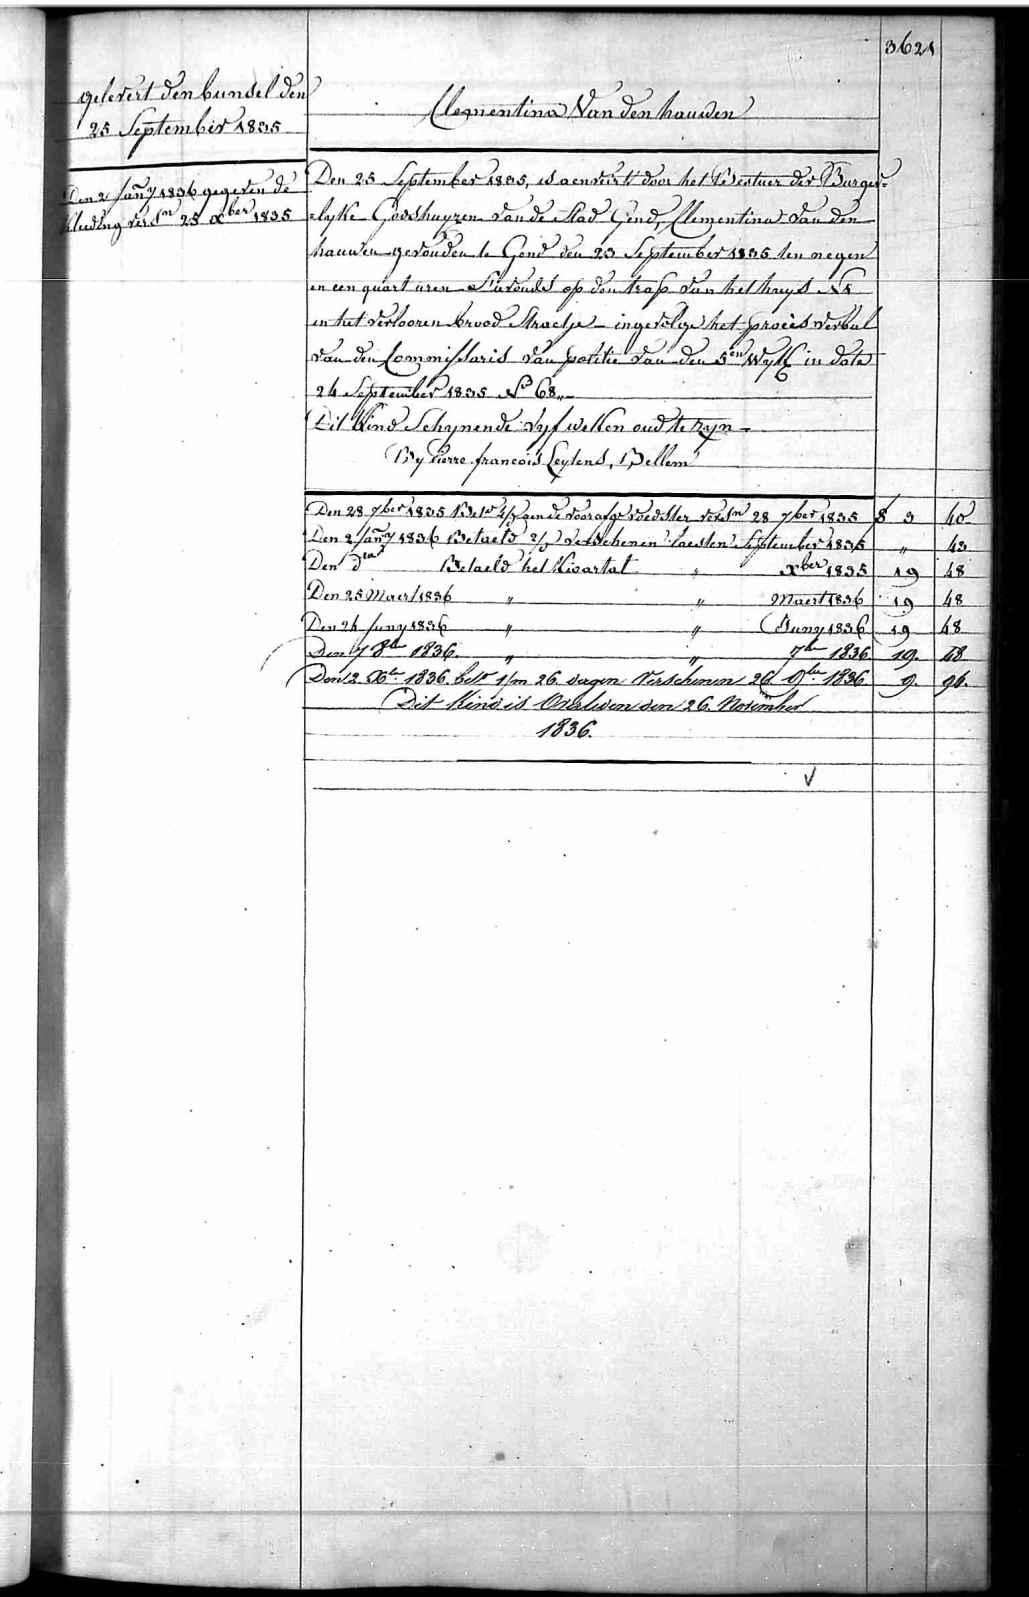 3621
gelevert den bunsel den
25 September 1835
Clementina Van den hauwen
Den 2 Jany 1836 gegeven de
kleeding vers.en 25 Xber 1835
Den 25 September 1835, is aenveirt door het Bestuer der Burger-
elyke Godshuyzen van de Stad Gend, Clementina van den
hauwen gevonden te Gend den 23 September 1835 ten negen
en een quart uren s'avonds op den trap van het huys N
in het verlooren brood Straetje ingevolge het procès verbal
van den Commissaris van politie van den 5en Wyk in date
24 September 1835 No 68
Dit Kind Schynende vyf weken oud te zyn
By Pierre francois Leytens, Bellem
Den 28 7ber 1835 voedster 28 7ber 1835 3 40
Den 2 Jany 1836 Betaeld 2/ verschenen laesten September 1835 " 43
Den do Betaeld het Kwartal " Xber 1835 19 48
Den 25 Maert 1836 " " Maert 1836 19 48
Den 24 Juny 1836 " " Juny 1836 19 48
Den 7 8br 1836. " " 7br 1836 19. 48
Den 2 Xbr 1836. bet. 1/m 26. dagen Verschenen 26. 9br 1836 9. 96.
Dit Kind is Overleden den 26. November
1836.